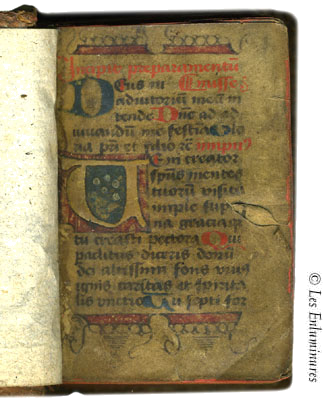 Incipit preparamentum
Deus in Misse
adiutoriū meū in
tende Dñe ad ad
iuuandū me festia Glo
ria pri et filio rc ympus
Veni creator
spūs mentes
tuorum visita
imple sup
na gracia q̄
tu creasti pectora Qui
paclitus diceris donū
dei altissimi fons viuus
ignis caritas et spirita
lis vnctio Tu septi for
© Les Enluminures